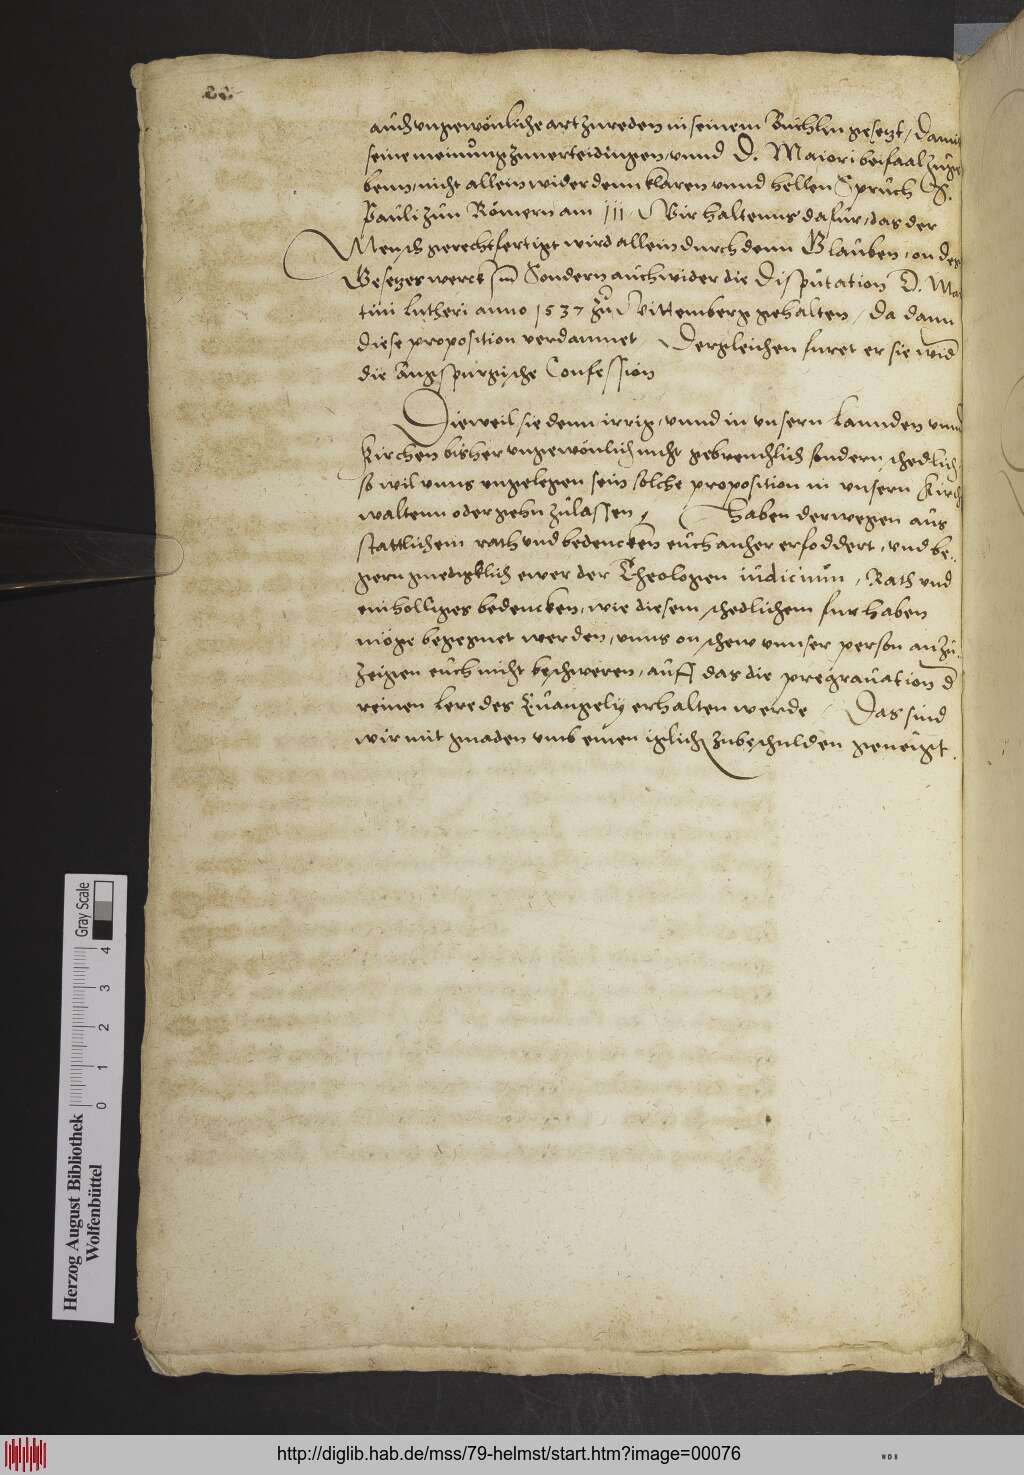 auch ungewönliche art zureden in seinem Buchlin gesetzt / Damit
seine meinung zuuerteidingen, unnd D. Maiori beifaal zuge
benn, nicht allein wider denn klaren unnd hellen Spruch S.
Pauli zun Römern am III Wir haltenns dafur, das der
Mensch gerechtfertigt wird allein durch denn Glauben, on des
Gesetzes werck Sondern auch wider die Disputation D. Mar
tini Lutheri anno 1537 zu Wittemberg gehalten / da dann
diese proposition verdammet Dergleichen furet er sie wid
die Augspurgische Confession
Dieweil sie denn irrig, unnd in unsern Lannden unnd
Kirchen bisher ungewönlich nicht gebreuchlich sondern schedlich
so wil unns ungelegen sein solche proposition in unsern Kirch
walten oder gehn zulassen / Haben derwegen aus
stattlichem rath und bedencken euch anher erfoddert, und be-
gern gnedigklich ewer der Theologen iudicium, Rath und
einhelliges bedencken, wie diesem schedlichem furhaben
möge begegnet werden, unns on schew unnser person anzu-
zeigen euch nicht beschweren, auff das die pregrauation d
reinen Lere des Euangelij erhalten werde / Das sind
wir mit gnaden umb einen iglich zubeschulden geneigt.
Gray Scale
0 1 2 3 4
Herzog August Bibliothek
Wolfenbüttel
http://diglib.hab.de/mss/79-helmst/start.htm?image=00076